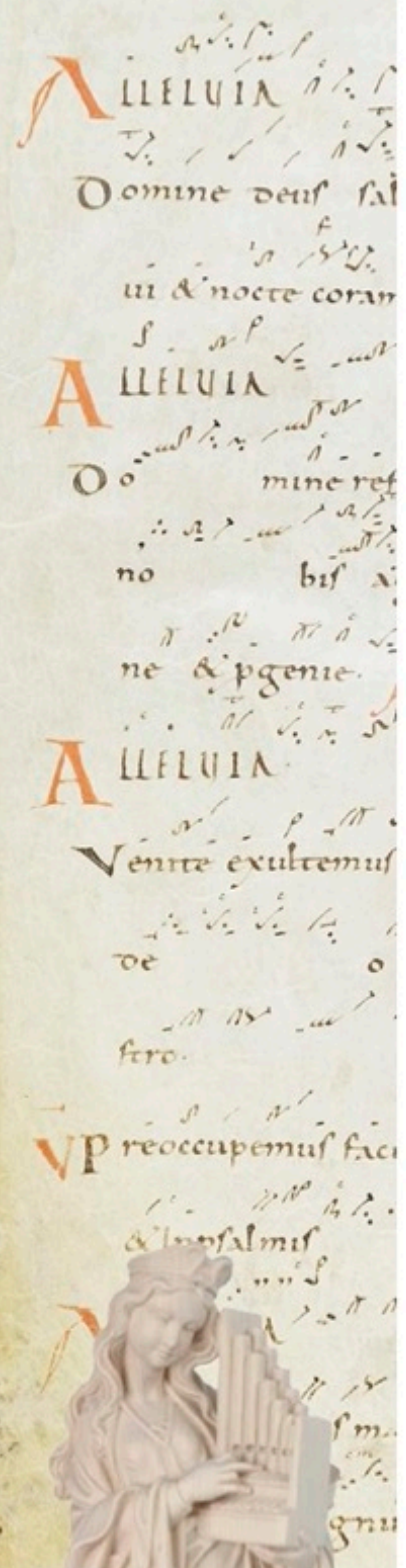 ALLELUIA
Domine deus sal
ui & nocte coram
ALLELUIA
Do mine ref
no bis a
ne & pgenie.
ALLELUIA
Venite exultemus
de o
stro.
V Preoccupemus faci
& psalmis
A
s m
gnu